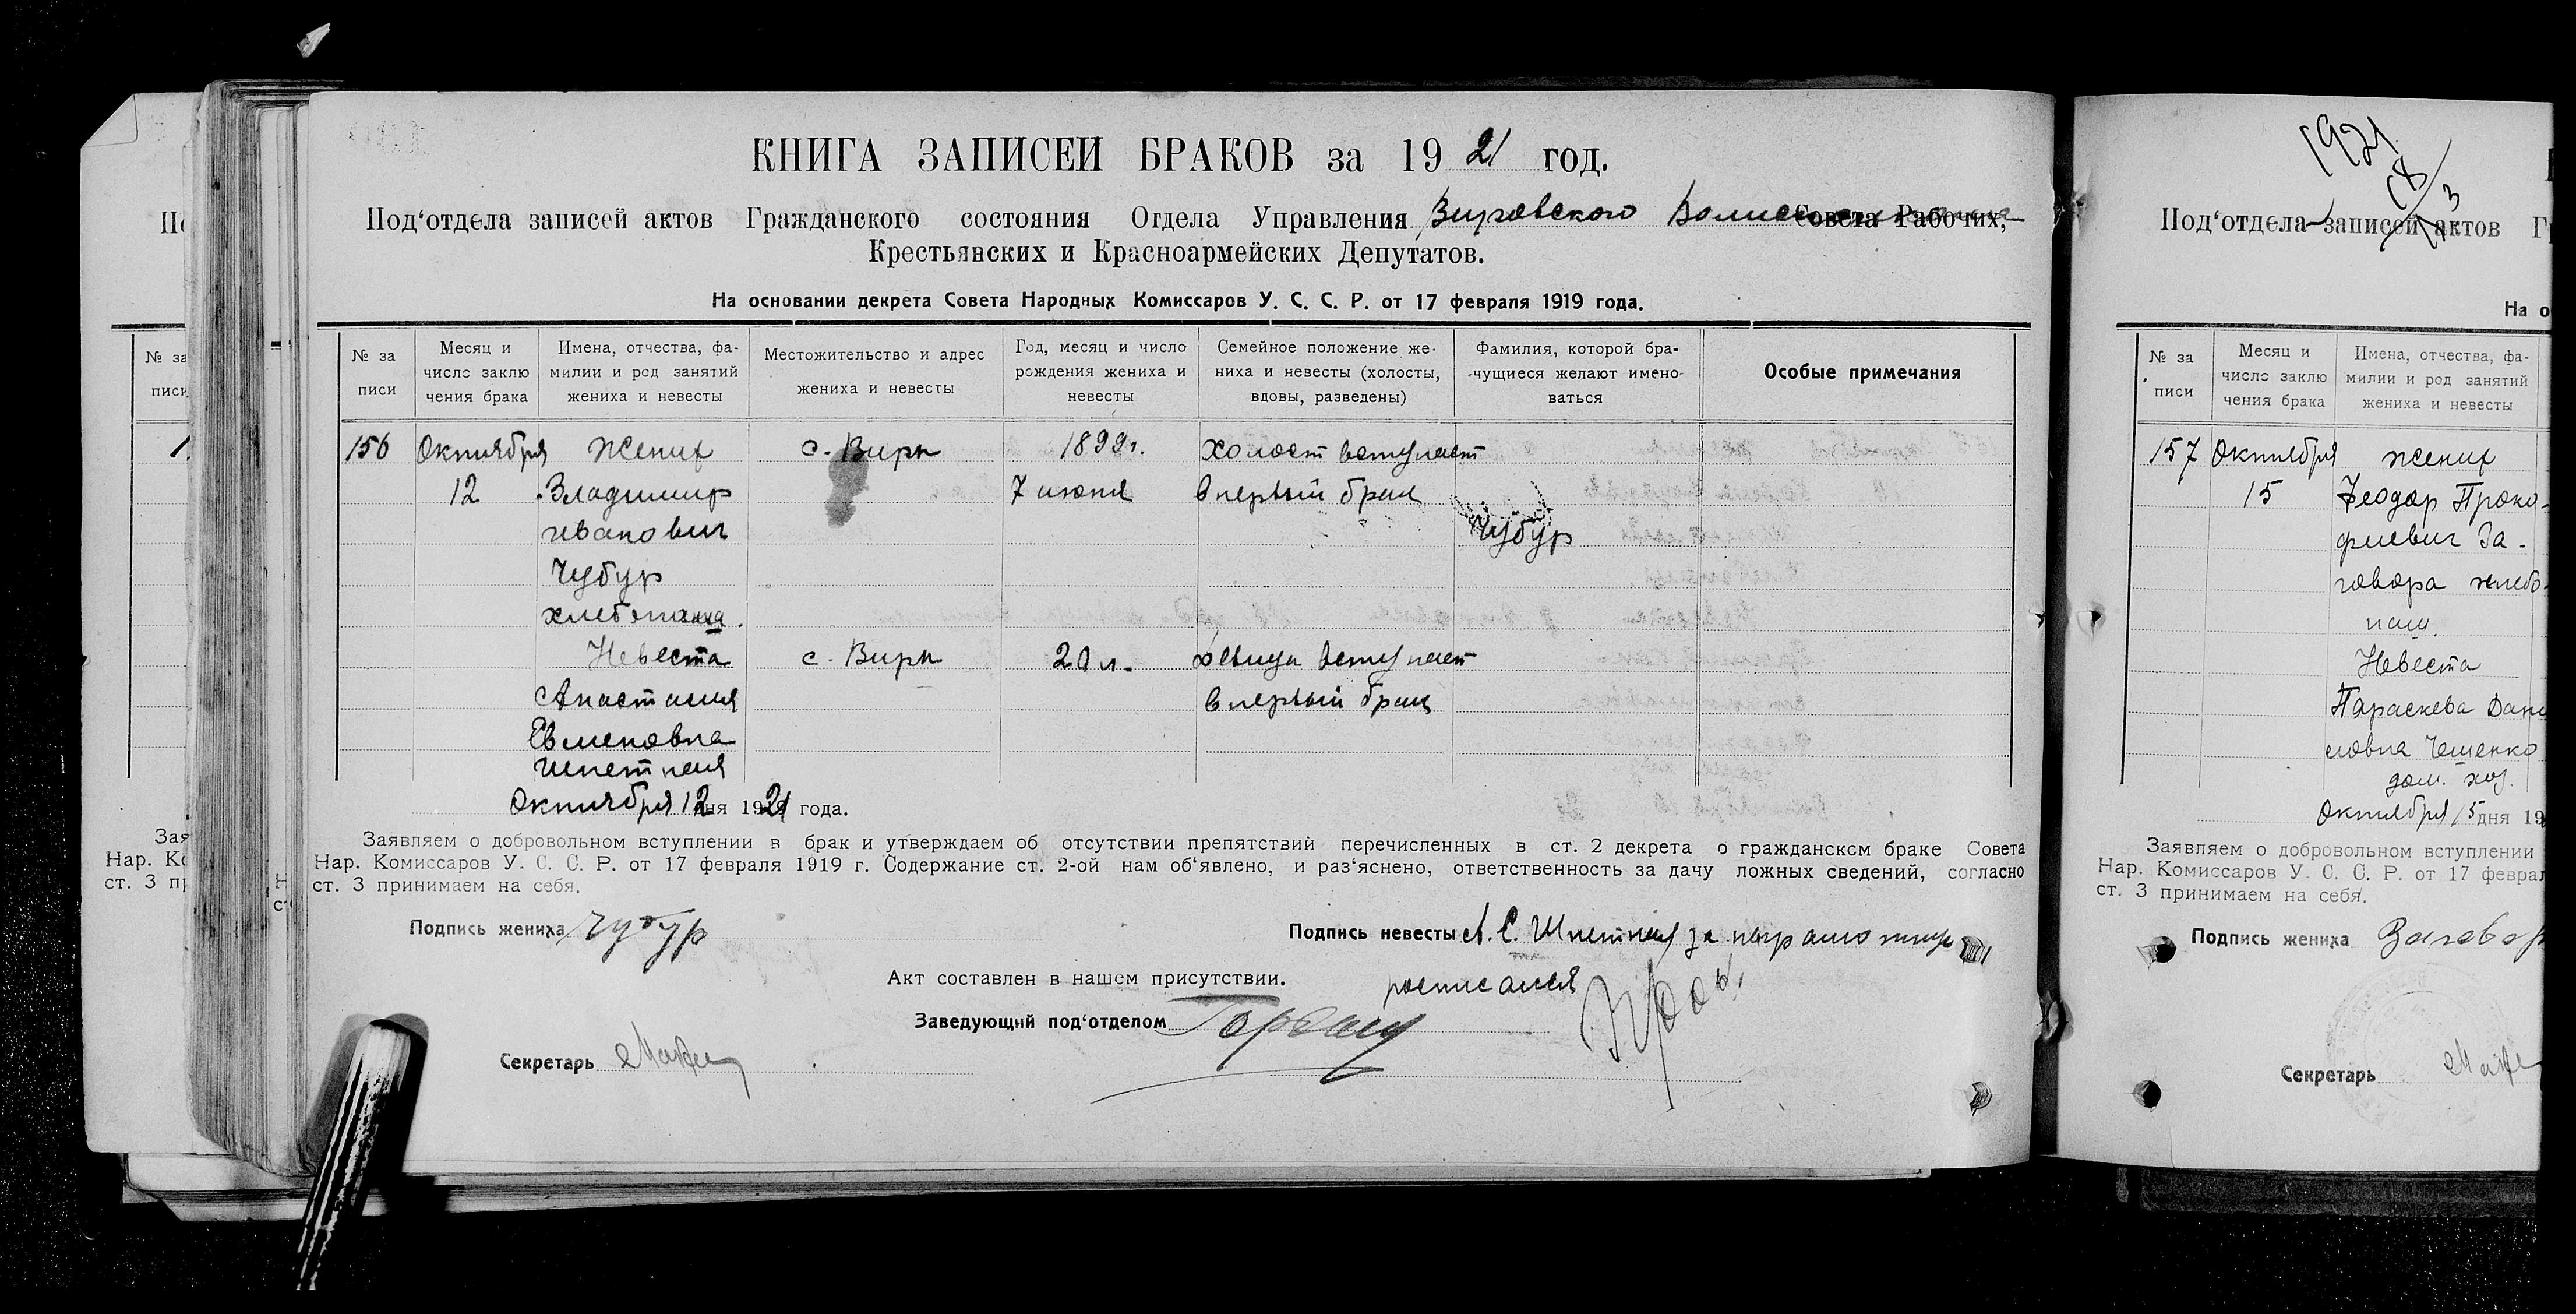 КНИГА ЗАПИСЕИ БРАКОВ за 1921 год.
Под‘отдела записей актов Гражданского состояния Отдела Управления Вировского Совета Рабочих,
Крестьянских и Красноармейских Депутатов.
На основании декрета Совета Народных Комиссаров У. С. С. Р. от 17 февраля 1919 года.
№ за
писи
Месяц и
число заклю
чения брака
Имена, отчества, фа-
милии и род занятий
жениха и невесты
Местожительство и адрес
жениха и невесты
Год, месяц и число
рождения жениха и
невесты
Семейное положение же-
ниха и невесты (холосты,
вдовы, разведены)
Фамилия, которой бра-
чущиеся желают имено-
ваться
Особые примечания
156 Октября Жених с. Виры 1899г. холост вступает
12 Владимир 7 июня в первый брак
иванович Чубур
Чубур
хлебопашц.
Невеста с. Виры 20 л. девица вступает
Анастасия в первый брак
Евменовна
Шпетная
Октября 12 дня 1921 года.
Заявляем о добровольном вступлении в брак и утверждаем об отсутствии препятствий перечисленных в ст. 2 декрета о гражданском браке Совета
Нар. Комиссаров У. С. С. Р. от 17 февраля 1919 г. Содержание ст. 2-ой нам об‘явлено, и раз‘яснено, ответственность за дачу ложных сведений, согласно
ст. 3 принимаем на себя.
Подпись жениха Чубур
Подпись невесты А. Е. Шпетная за неграмотную
росписался
Акт составлен в нашем присутствии.
Заведующий под‘отделом
Секретарь
1921
Под‘отдела записей актов Г
На о
№ за
писи
Месяц и
число заклю
чения брака
Имена, отчества, фа-
милии и род занятий
жениха и невесты
157 Октября Жених
15 Феодор Проко-
фиевич За-
говора хлебо-
паш.
Невеста
Параскева Дани
ловна Чешенко
дом. хоз.
Октября 15 дня 19
Заявляем о добровольном вступлении
Нар. Комиссаров У. С. С. Р. от 17 феврал
ст. 3 принимаем на себя.
Подпись жениха Заговор
Секретарь